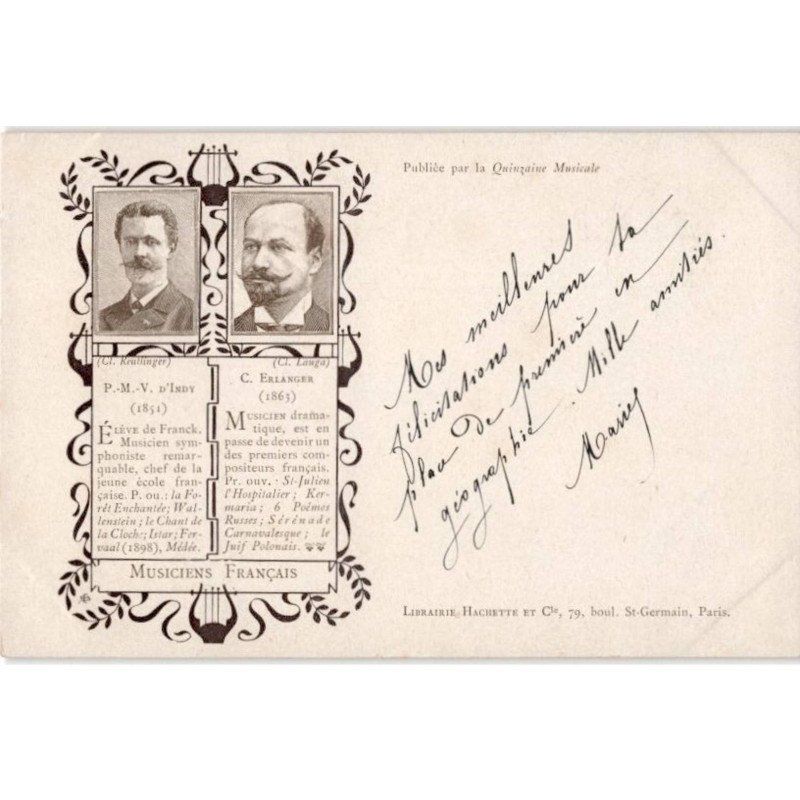 Publiée par la Quinzaine Musicale
(Cl. Reutlinger)
P.-M.-V. D'INDY
(1851)
ÉLÈVE de Franck.
Musicien sym-
phoniste remar-
quable, chef de la
jeune école fran-
çaise. P. ou.: la Fo-
rêt Enchantée; Wal-
lenstein; le Chant de
la Cloche; Istar; Fer-
vaal (1898), Médée.
(Cl. Langa)
C. ERLANGER
(1863)
MUSICIEN drama-
tique, est en
passe de devenir un
des premiers com-
positeurs français.
Pr. ouv. : St-Julien
l'Hospitalier; Ker-
maria; 6 Poèmes
Russes; Sérénade
Carnavalesque; le
Juif Polonais.
MUSICIENS FRANÇAIS
Mes meilleures
félicitations pour ta
place de première en
géographie. Mille amitiés.
LIBRAIRIE HACHETTE ET Cie, 79, boul. St-Germain, Paris.